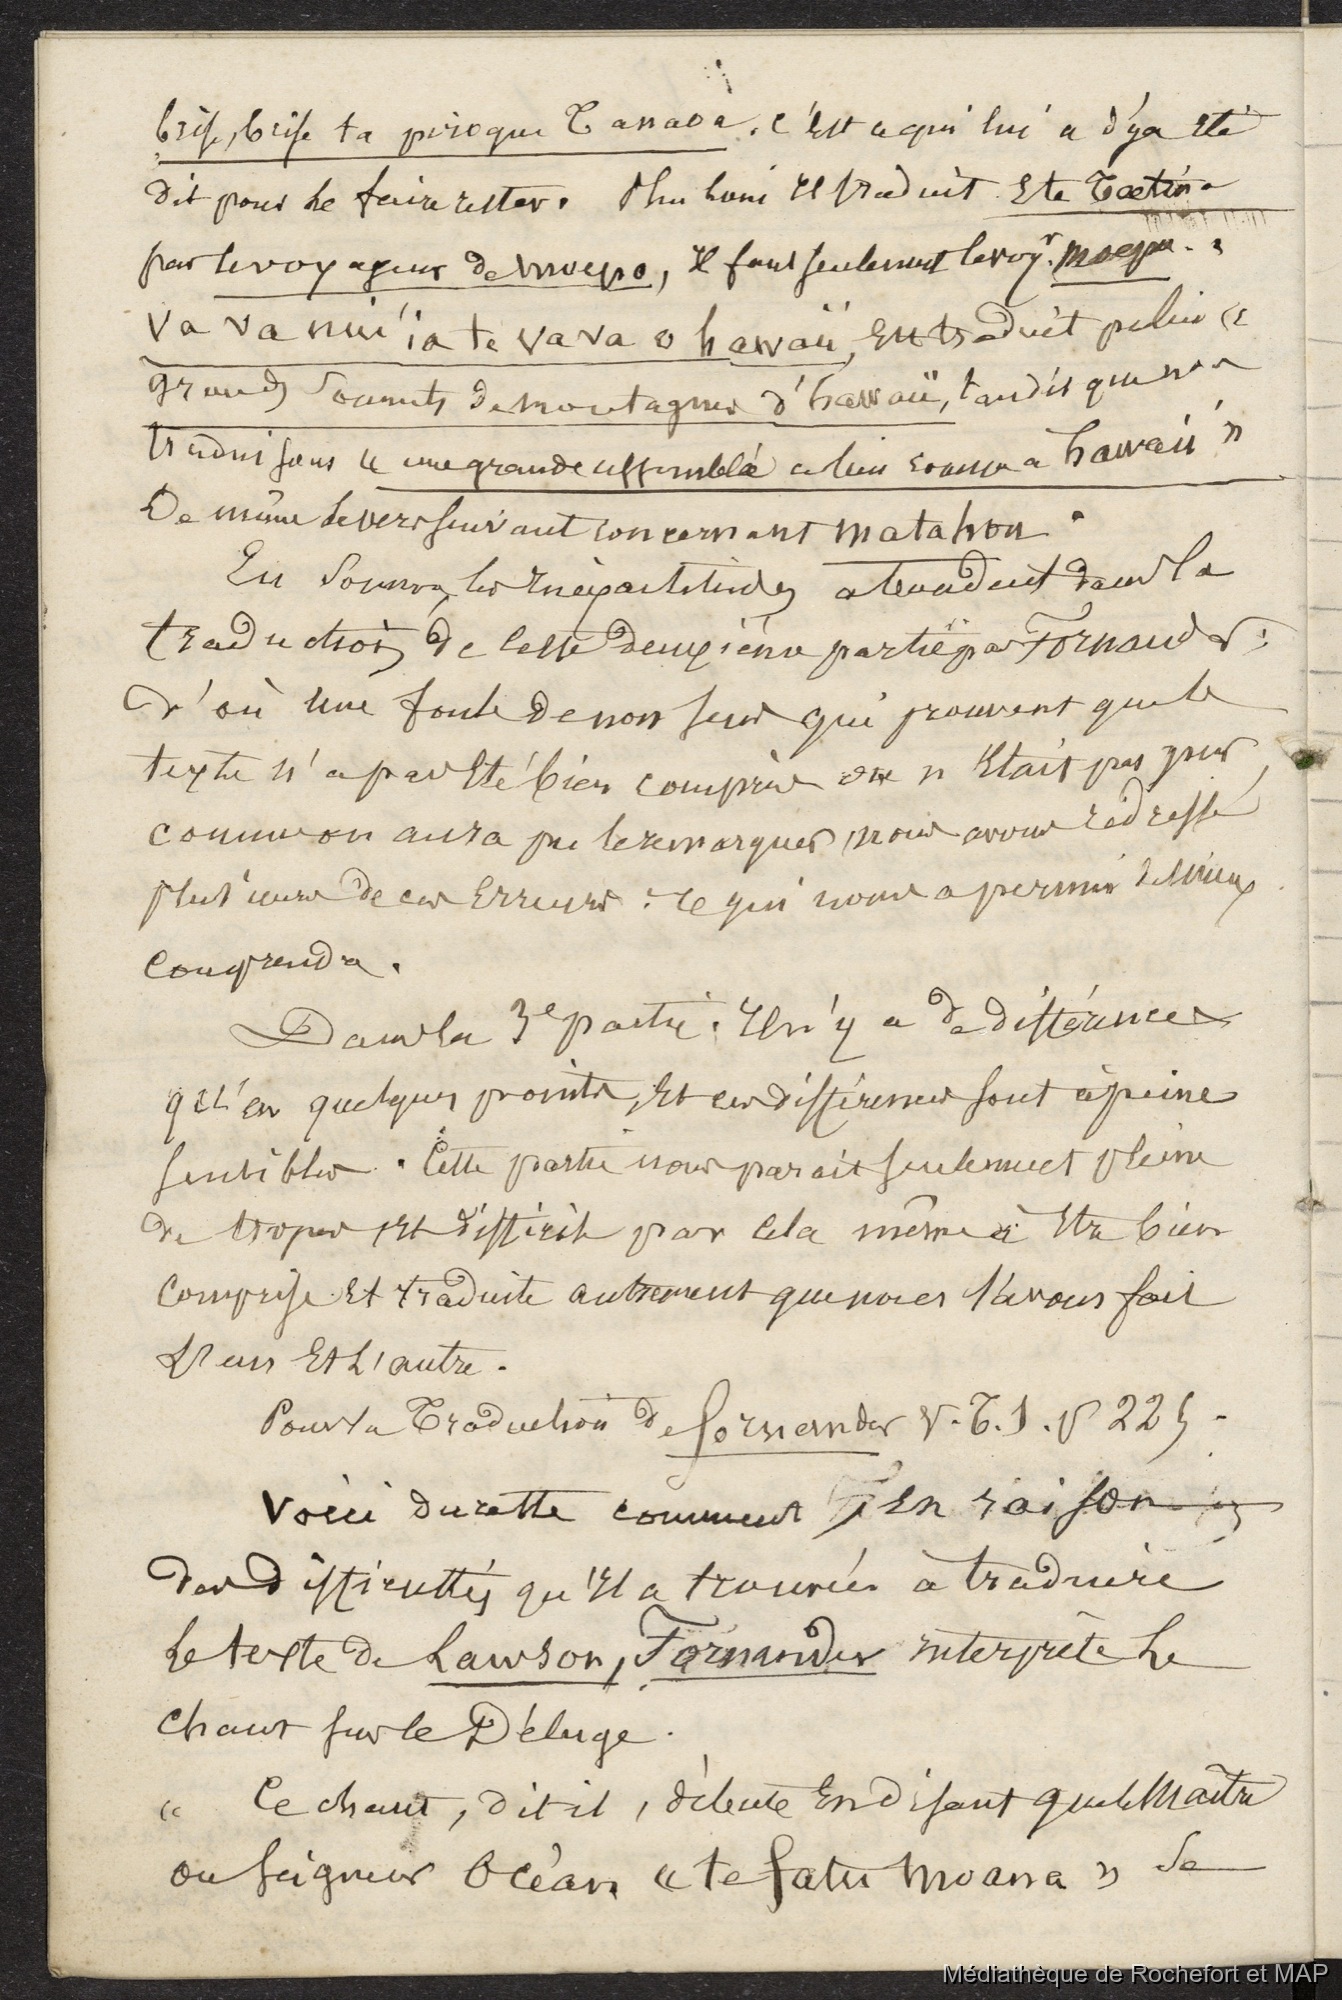 brise, brise ta pirogue Tanaoa. c'est ce qui lui a déja été
dit pour le faire rester. Plus loin il traduit Ete Tætina
par le voyageur de moepo, il faut seulement le voyr. moepo.
Va va nui ia te vava o hawaii, est traduit par lui «
grands sommets de montagnes d'hawaii, tandis que nous
traduisons « une grande assemblée a lieu a hawaii »
De même le vers suivant concernant matahou.
En somme, les inexactitudes abondent dans la
traduction de cette deuxième partie par Fornander;
d'où une foule de non sens qui prouvent que le
texte n'a pas été bien compris ou n'était pas pur,
comme on aura pu le remarquer, nous avons redressé
plusieurs de ces erreurs. ce qui nous a permis de mieux
comprendre.
Dans la 3e partie. Il n'y a de différences
qu'en quelques points, et ces différences sont à peine
sensibles. Cette partie nous parait seulement pleine
de tropes et difficile par cela même à être bien
comprise et traduite autrement que nous l'avons fait
l'un et l'autre.
Pour la Traduction de fornander V. T. 1. p 225.
Voici du reste comment en raison
des difficultés qu'il a trouvées à traduire
le texte de Lawson, Fornander interprète le
chant sur le Déluge.
« Ce chant, dit il, débute en disant que le Maître
ou seigneur Océan « te fatu moana » se